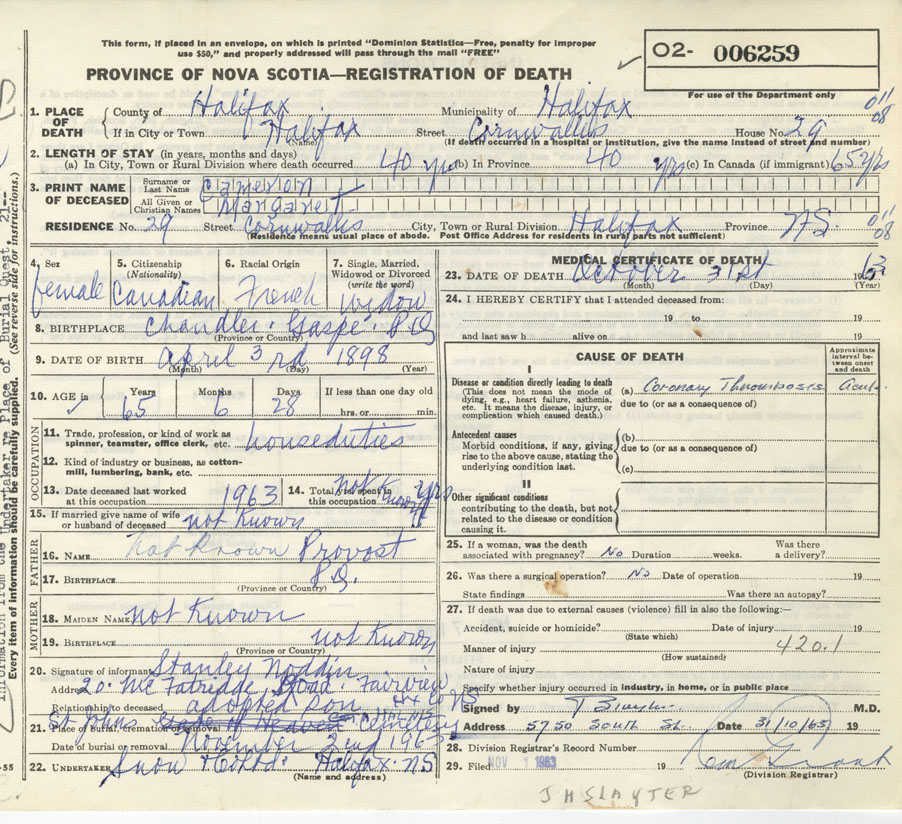 This form, if placed in an envelope, on which is printed "Dominion Statistics—Free, penalty for improper
use $50," and properly addressed will pass through the mail "FREE"
PROVINCE OF NOVA SCOTIA—REGISTRATION OF DEATH
O2- 006259
For use of the Department only
1. PLACE OF DEATH County of Halifax Municipality of Halifax 011 08
If in City or Town Halifax Street Cornwallis House No. 29
(Name) (If death occurred in a hospital or institution, give the name instead of street and number)
2. LENGTH OF STAY (in years, months and days)
(a) In City, Town or Rural Division where death occurred 40 yrs (b) In Province 40 yrs (c) In Canada (if immigrant) 65 yrs
3. PRINT NAME OF DECEASED Surname or Last Name Cameron
All Given or Christian Names Margaret
RESIDENCE No. 29 Street Cornwallis City, Town or Rural Division Halifax Province NS. 011 08
(Residence means usual place of abode. Post Office Address for residents in rural parts not sufficient)
4. Sex female
5. Citizenship (Nationality) Canadian
6. Racial Origin French
7. Single, Married, Widowed or Divorced (write the word) widow
8. BIRTHPLACE Chandler. Gaspé. P.Q
(Province or Country)
9. DATE OF BIRTH April 3rd 1898
(Month) (Day) (Year)
10. AGE in Years 65 Months 6 Days 28 If less than one day old hrs. or min.
OCCUPATION
11. Trade, profession, or kind of work as spinner, teamster, office clerk, etc. houseduties
12. Kind of industry or business, as cotton-mill, lumbering, bank, etc.
13. Date deceased last worked at this occupation 1963
14. Total yrs spent in this occupation not Known yrs
15. If married give name of wife or husband of deceased not Known
FATHER
16. NAME not Known Provost
17. BIRTHPLACE P.Q.
(Province or Country)
MOTHER
18. MAIDEN NAME not Known
19. BIRTHPLACE not Known
(Province or Country)
20. Signature of informant Stanley Noddin
Address 20. Mc Fatridge Road. Fairview Hx Co NS
Relationship to deceased adopted son
21. Place of burial, cremation or removal St Johns Gate of Heaven Cemetery
Date of burial or removal November 2nd 1963
22. UNDERTAKER Snow Halifax. NS
(Name and address)
MEDICAL CERTIFICATE OF DEATH
23. DATE OF DEATH October 31st 1963
(Month) (Day) (Year)
24. I HEREBY CERTIFY that I attended deceased from:
19 to 19
and last saw h alive on 19
CAUSE OF DEATH
Approximate interval between onset and death
I
Disease or condition directly leading to death (a) Coronary Thrombosis Acute.
(This does not mean the mode of dying, e.g., heart failure, asthenia, etc. It means the disease, injury, or complication which caused death.)
due to (or as a consequence of)
Antecedent causes (b)
Morbid conditions, if any, giving rise to the above cause, stating the underlying condition last.
due to (or as a consequence of)
(c)
II
Other significant conditions
contributing to the death, but not related to the disease or condition causing it.
25. If a woman, was the death associated with pregnancy? No Duration weeks. Was there a delivery?
26. Was there a surgical operation? No Date of operation 19
State findings Was there an autopsy?
27. If death was due to external causes (violence) fill in also the following:—
Accident, suicide or homicide? Date of injury 19
(State which)
Manner of injury 420.1
(How sustained)
Nature of injury
Specify whether injury occurred in industry, in home, or in public place
Signed by M.D.
Address 5750 South St. Date 31/10/63 19
28. Division Registrar's Record Number
29. Filed NOV 1 1963 19
(Division Registrar)
JHSLAYTER
Every item of information should be carefully supplied. (See reverse side for instructions.)
Information from the Undertaker re Place of Burial Quest. 21--
55